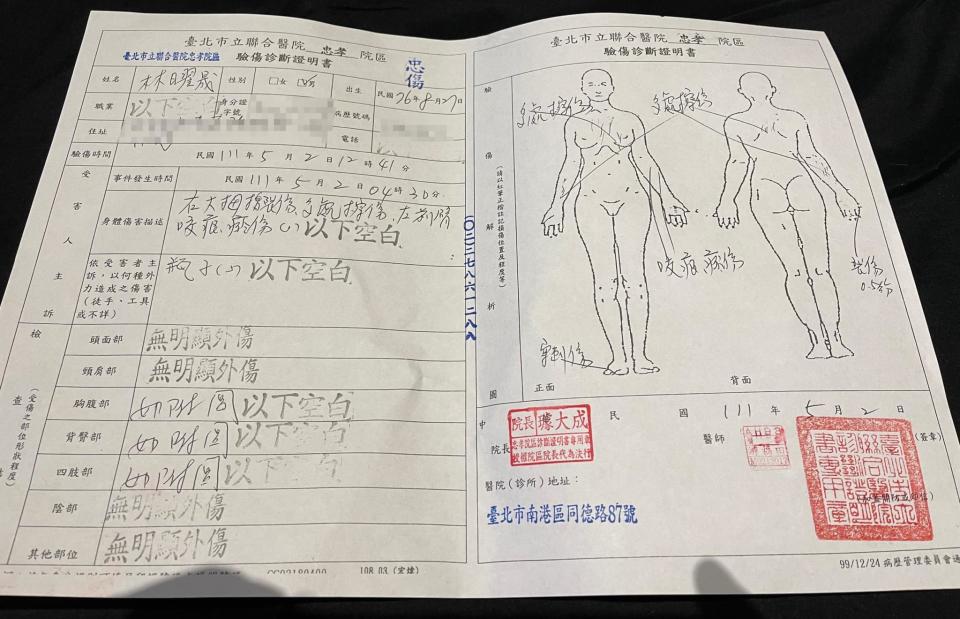 臺北市立聯合醫院 忠孝 院區
臺北市立聯合醫院忠孝院區 驗傷診斷證明書
忠傷
姓名 林曜晟 性別 □女 男 出生 民國 76年8月27日
職業 以下空白 身分證字號 病歷號碼
住址 電話
驗傷時間 民國 111 年 5 月 2 日 12 時 41 分
受害人主訴
事件發生時間 民國 111 年 5 月 2 日 04 時 30 分
身體傷害描述
在大拇 傷、多處擦傷、左前臂
咬痕 傷 以下空白
依受害者主訴，以何種外力造成之傷害(徒手、工具或不詳)
瓶子 以下空白
檢查
(受傷之部位形狀程度)
頭面部 無明顯外傷
頸肩部 無明顯外傷
胸腹部 如附圖 以下空白
背臀部 如附圖 以下空白
四肢部 如附圖 以下空白
陰部 無明顯外傷
其他部位 無明顯外傷
108.03 (宏煒)
臺北市立聯合醫院 忠孝 院區
驗傷診斷證明書
驗傷解析圖
多處擦傷
多處擦傷
咬痕 傷
0.5公分
穿刺傷
正面
背面
中 民國 111 年 5 月 2 日
院長 璩大成
忠孝院區診斷證明書專用章
授權院區院長代為決行
醫師
(簽章)
醫院(診所)地址：
臺北市南港區同德路87號
99/12/24 病歷管理委員會通